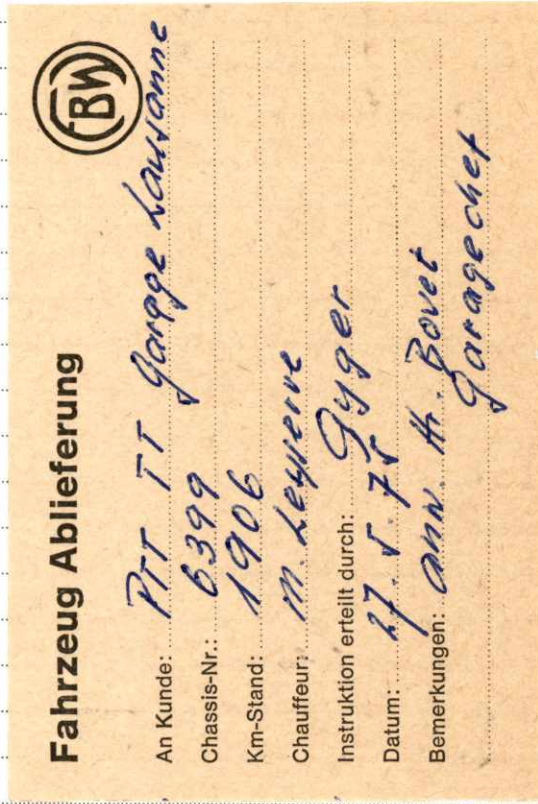 Fahrzeug Ablieferung
FBW
An Kunde: PTT TT Garage Lausanne
Chassis-Nr.: 6399
Km-Stand: 1906
Chauffeur: M. Leyverve
Instruktion erteilt durch: Gyger
Datum: 27.5.75
Bemerkungen: anw. Hr. Bovet
Garagechef